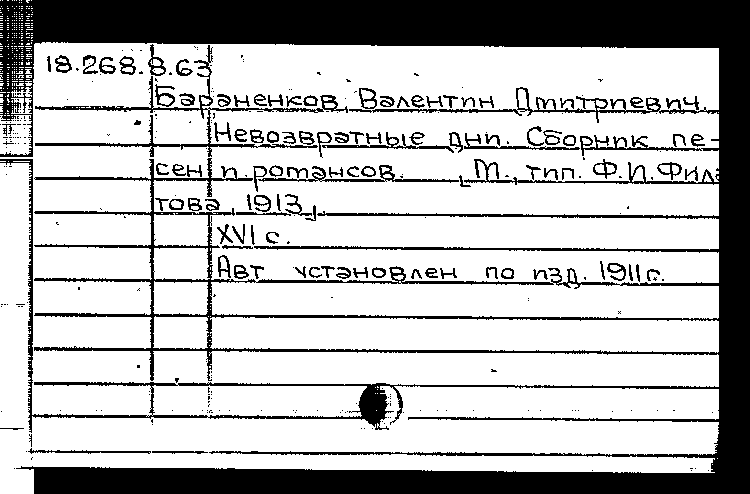 18.268.8.63
Бараненков, Валентин Дмитриевич.
Невозвратные дни. Сборник пе-
сен и романсов. [М., тип. Ф.И.Фила
това, 1913]
XVI с.
Авт установлен по изд. 1911г.